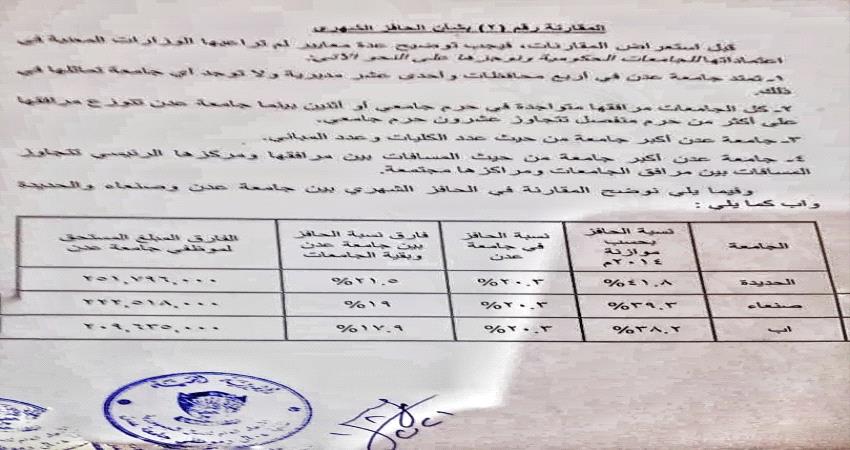 المقارنة رقم (٢) بشأن الحافز الشهري
قبل استعراض المقارنات، فيجب توضيح عدة معايير لم تراعيها الوزارات المعنية في
اعتماداتها للجامعات الحكومية ونوجزها على النحو الآتي:
١- تمتد جامعة عدن في أربع محافظات وإحدى عشر مديرية ولا توجد أي جامعة تماثلها في
ذلك.
٢- كل الجامعات مرافقها متواجدة في حرم جامعي أو اثنين بينما جامعة عدن تتوزع مرافقها
على أكثر من حرم منفصل تتجاوز عشرون حرم جامعي.
٣- جامعة عدن أكبر جامعة من حيث عدد الكليات وعدد المباني.
٤- جامعة عدن أكبر جامعة من حيث المسافات بين مرافقها ومركزها الرئيسي تتجاوز
المسافات بين مرافق الجامعات ومراكزها مجتمعة.
وفيما يلي نوضح المقارنة في الحافز الشهري بين جامعة عدن وصنعاء والحديدة
واب كما يلي:
الجامعة | نسبة الحافز بحسب موازنة ٢٠١٤م | نسبة الحافز في جامعة عدن | فارق نسبة الحافز بين جامعة عدن وبقية الجامعات | الفارق المبلغ المستحق لموظفي جامعة عدن
الحديدة | ٤١.٨% | ٢٠.٣% | ٢١.٥% | ٢٥١,٧٩٦,٠٠٠
صنعاء | ٣٩.٣% | ٢٠.٣% | ١٩% | ٢٢٢,٥١٨,٠٠٠
اب | ٣٨.٢% | ٢٠.٣% | ١٧.٩% | ٢٠٩,٦٣٥,٠٠٠